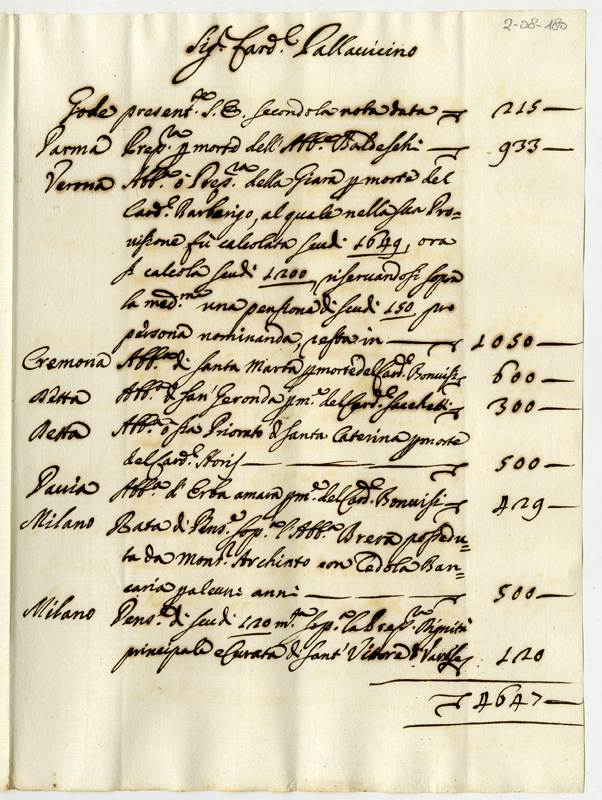 2-08-180
Sig.r Card.l Pallavicino
Gode present.te S. E. secondo la nota data 215
Parma Prep.ra p morte dell'Abb.e Baldeschi 933
Verona Abb.a ò Prep.ra della Giara p morte del
Card.l Barberigo, al quale nella sua Pro=
visione fù calcolata scudi 1649, ora
si calcola scudi 1200, riservandosi sopra
la med.ma una pensione di scudi 150 pro
persona nominanda, resta in 1050
Cremona Abb.a di Santa Marta p morte del Card. Bonvisi 600
Detta Abb.a di San Geronda p m.e del Card. Sacchetti 300
Detta Abb.a ò sia Priorato di Santa Caterina p morte
del Card. Noris 500
Pavia Abb.a d'Erba amara p m.e del Card. Bonvisi 429
Milano Rata di Pens.e sop.a l'Abb.a Brera possedu=
ta da Mons.r Archinto con Cedola Ban=
caria p alcuni anni 500
Milano Pens.e di scudi 120 m.ta sop.a la Prep.ra Dignità
principale e Curata di Sant' Vittore di Varese 120
4647